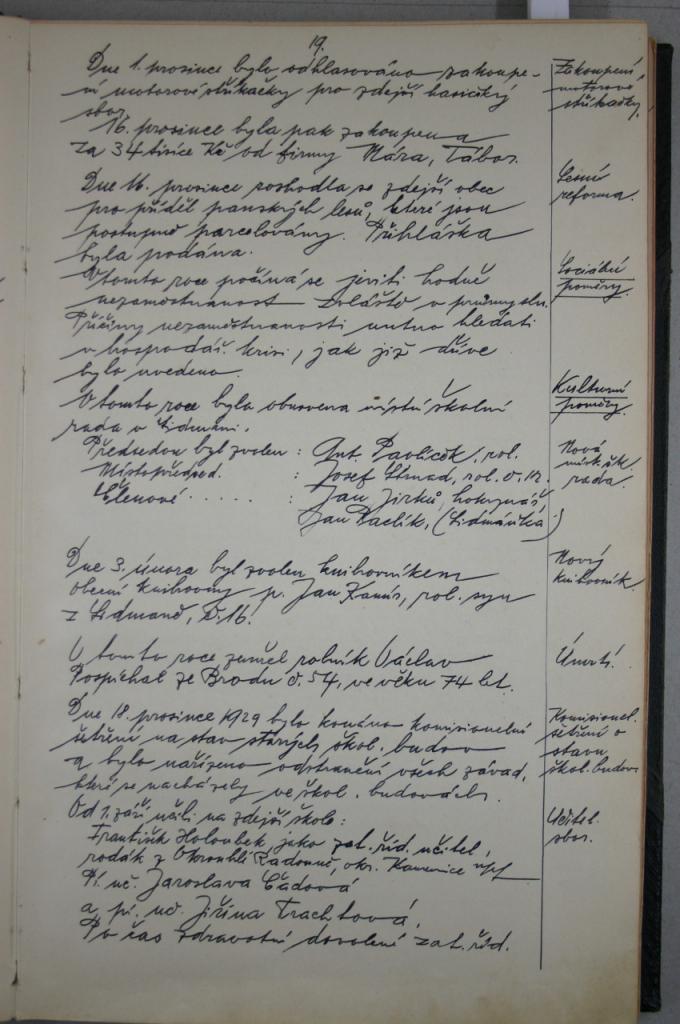 19.
Dne 1. prosince bylo odhlasováno zakoupe-
ní motorové stříkačky pro zdejší hasičský
sbor.
16. prosince byla pak zakoupena
za 34 tisíce Kč od firmy Mára, Tábor.
Zakoupení
motorové
stříkačky.
Dne 16. prosince rozhodla se zdejší obec
pro příděl panských lesů, které jsou
postupně parcelovány. Přihláška
byla podána.
Lesní
reforma.
V tomto roce počíná se jeviti hodně
nezaměstnanost zvláště v průmyslu.
Příčiny nezaměstnanosti nutno hledati
v hospodář. krisi, jak již dříve
bylo uvedeno.
Sociální
poměry.
V tomto roce byla obnovena místní školní
rada v Lidmani.
Kulturní
poměry.
Předsedou byl zvolen: Ant. Pavlíček, rol.
Místopředsed. Josef Strnad, rol. č. 12.
Členové . . . . . : Jan Jirků, hokynář
Jan Pavlík, (Lidmáňka)
Nová
míst. šk.
rada.
Dne 3. února byl zvolen knihovníkem
obecní knihovny p. Jan Kamiš, rol. syn
z Lidmaně, č. 16.
Nový
knihovník.
V tomto roce zemřel rolník Václav
Pospíchal ze Brodu č. 54, ve věku 74 let.
Úmrtí.
Dne 18. prosince 1929 bylo konáno komisionelní
šetření na stav starých škol. budov
a bylo nařízeno odstranění všech závad,
které se nacházely ve škol. budovách.
Komisionel.
šetření o
stavu
škol. budov.
Od 1. září učili na zdejší škole:
František Holoubek, jako zat. říd. učitel,
rodák z Okrouhlé Radouně, okr. Kamenice n/L
Pí. uč. Jaroslava Čadová
a pí. uč. Jiřina Trachtová.
Po čas zdravotní dovolené zat. říd.
Učitel.
sbor.